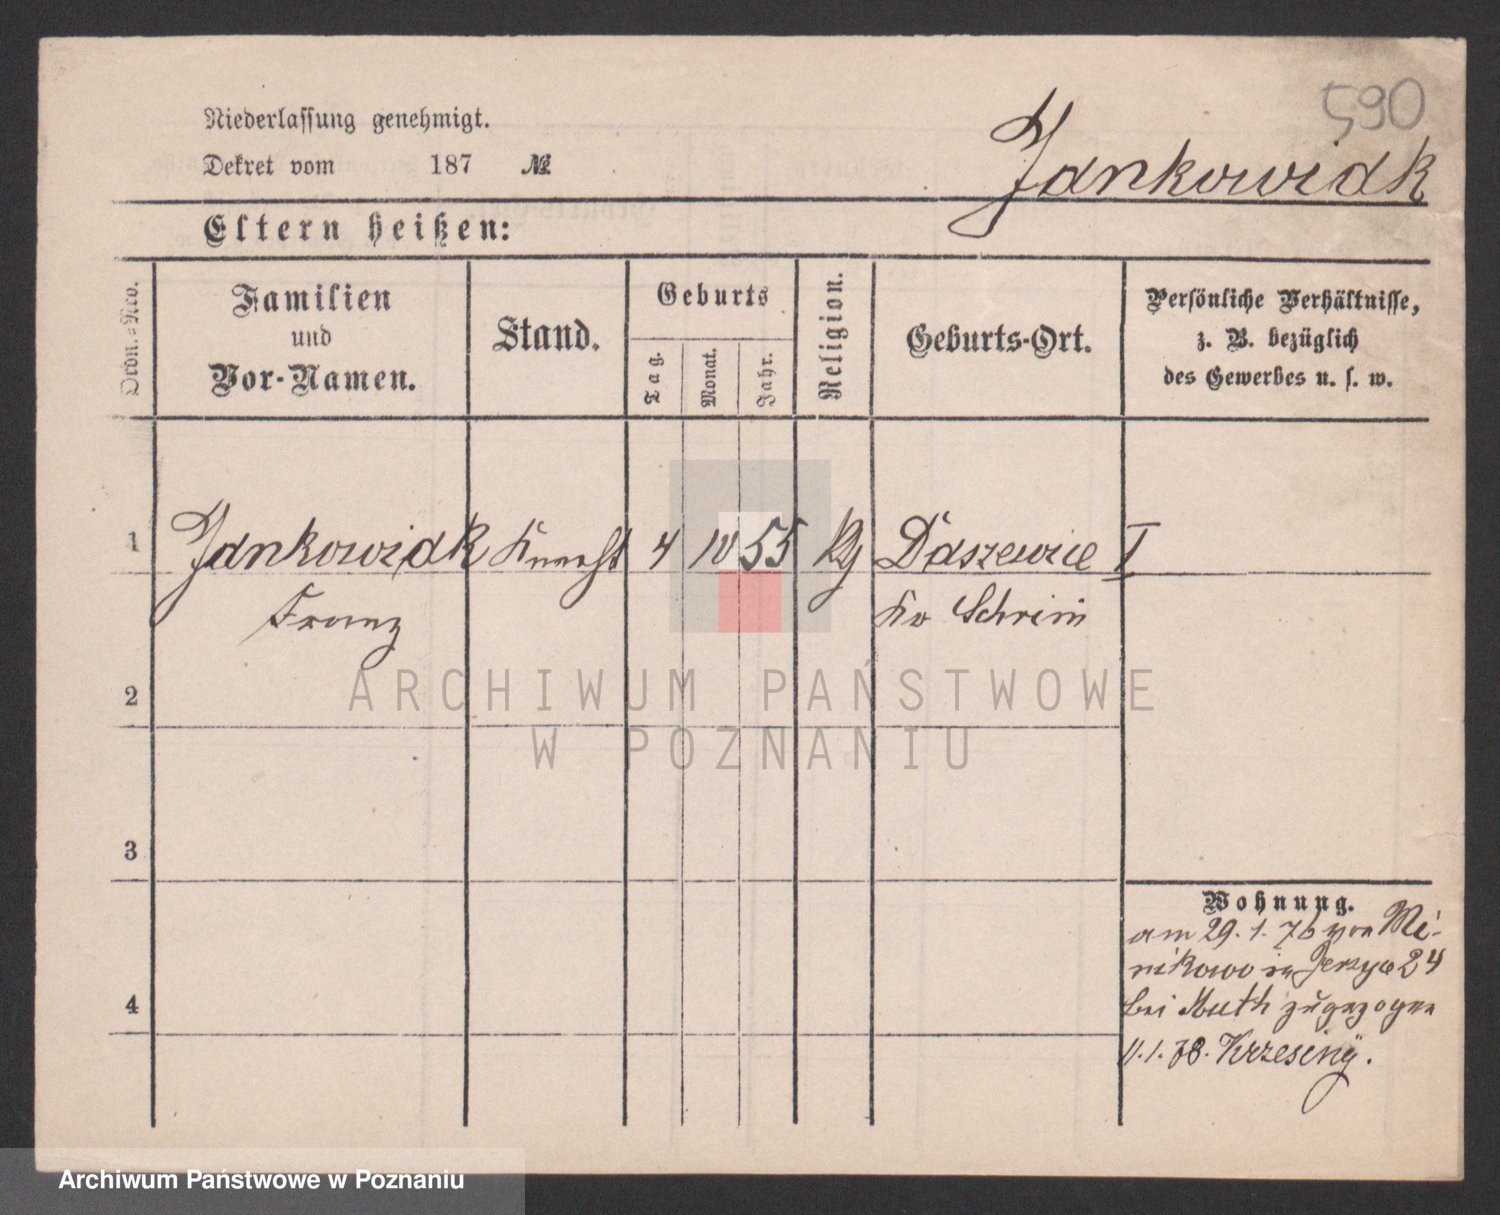 590
Niederlassung genehmigt.
Dekret vom 187 №
Jankowiak
Eltern heißen:
Ordn.-Nro.
Familien
und
Vor-Namen.
Stand.
Geburts
Tag.
Monat.
Jahr.
Religion.
Geburts-Ort.
Persönliche Verhältnisse,
z. B. bezüglich
des Gewerbes u. s. w.
1 Jankowiak Knecht 4 10 55 Daszewice I
Franz Kr Schrim
2
ARCHIWUM PAŃSTWOWE
W POZNANIU
3
4
Wohnung.
am 29. 1. 76 von Mi-
nikowo in Jerzyce 24
bei Muth zugezogen
11. 1. 78. Krzesiny.
Archiwum Państwowe w Poznaniu